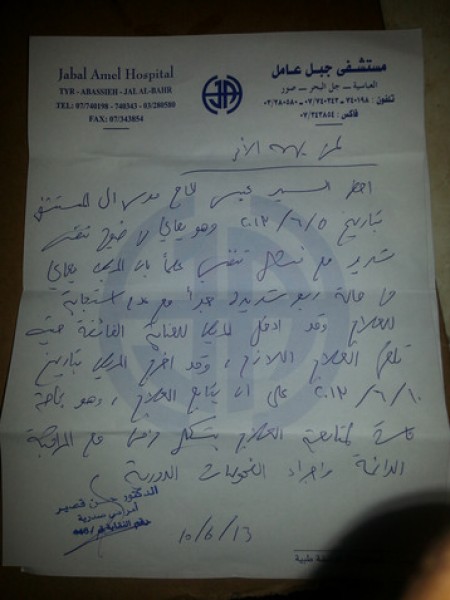 Jabal Amel Hospital
TYR - ABASSIEH - JAL AL-BAHR
TEL: 07/740198 - 740343 - 03/280580
FAX: 07/343854
مستشفى جبل عامل
العباسية – جل البحر – صور
تلفون : ٧٤٠١٩٨ – ٠٧/٧٤٠٣٤٣ – ٠٣/٢٨٠٥٨٠
فاكس : ٠٧/٣٤٣٨٥٤
لمن يهمه الأمر
احضر السيد الحاج الى المستشفى
بتاريخ ٢٠١٣/٦/٥ وهو يعاني من ضيق تنفس
شديد مع تنفسي علماً بأن المريض يعاني
من حالة ربو شديدة جداً مع عدم استجابة
للعلاج وقد ادخل المريض للعناية الفائقة حيث
تلقى العلاج اللازم ، وقد اخرج المريض بتاريخ
٢٠١٣/٦/١٠ على ان يتابع العلاج ، وهو بحاجة
لمتابعة العلاج بشكل مع المراقبة
الدائمة واجراء الفحوصات الدورية
الدكتور حسن قصير
أمراض صدرية
رقم النقابة
10/6/13
طبية